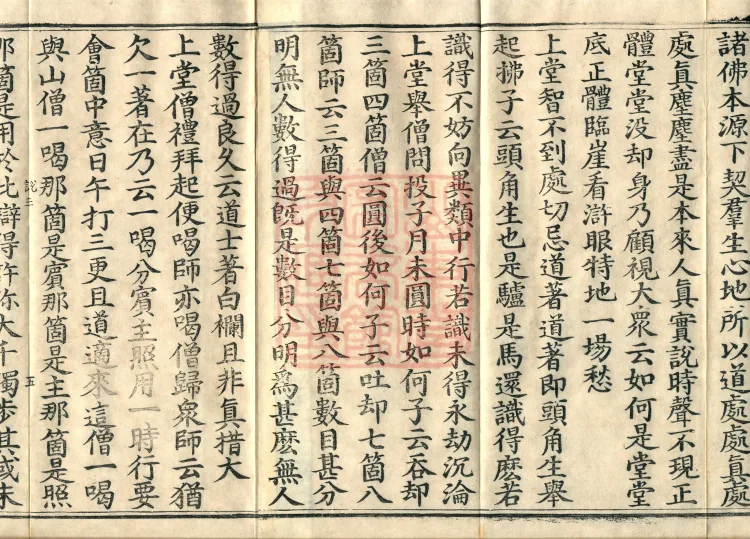 諸佛本源下契羣生心地所以道處處真處
處真塵塵盡是本來人真實說時聲不現正
體堂堂没却身乃顧視大衆云如何是堂堂
底正體臨崖看滸眼特地一場愁
上堂智不到處切忌道著道著即頭角生舉
起拂子云頭角生也是驢是馬還識得麽若
識得不妨向異類中行若識未得永劫沉淪
上堂舉僧問投子月未圓時如何子云吞却
三箇四箇僧云圓後如何子云吐却七箇八
箇師云三箇與四箇七箇與八箇數目甚分
明無人數得過旣是數目分明爲甚麽無人
數得過良久云道士著白襴且非真措大
上堂僧禮拜起便喝師亦喝僧歸衆師云猶
欠一著在乃云一喝分賓主照用一時行要
會箇中意日午打三更且道適來這僧一喝
與山僧一喝那箇是賓那箇是主那箇是照
說三
五
那箇是用於此辯得許你大千獨步其或未